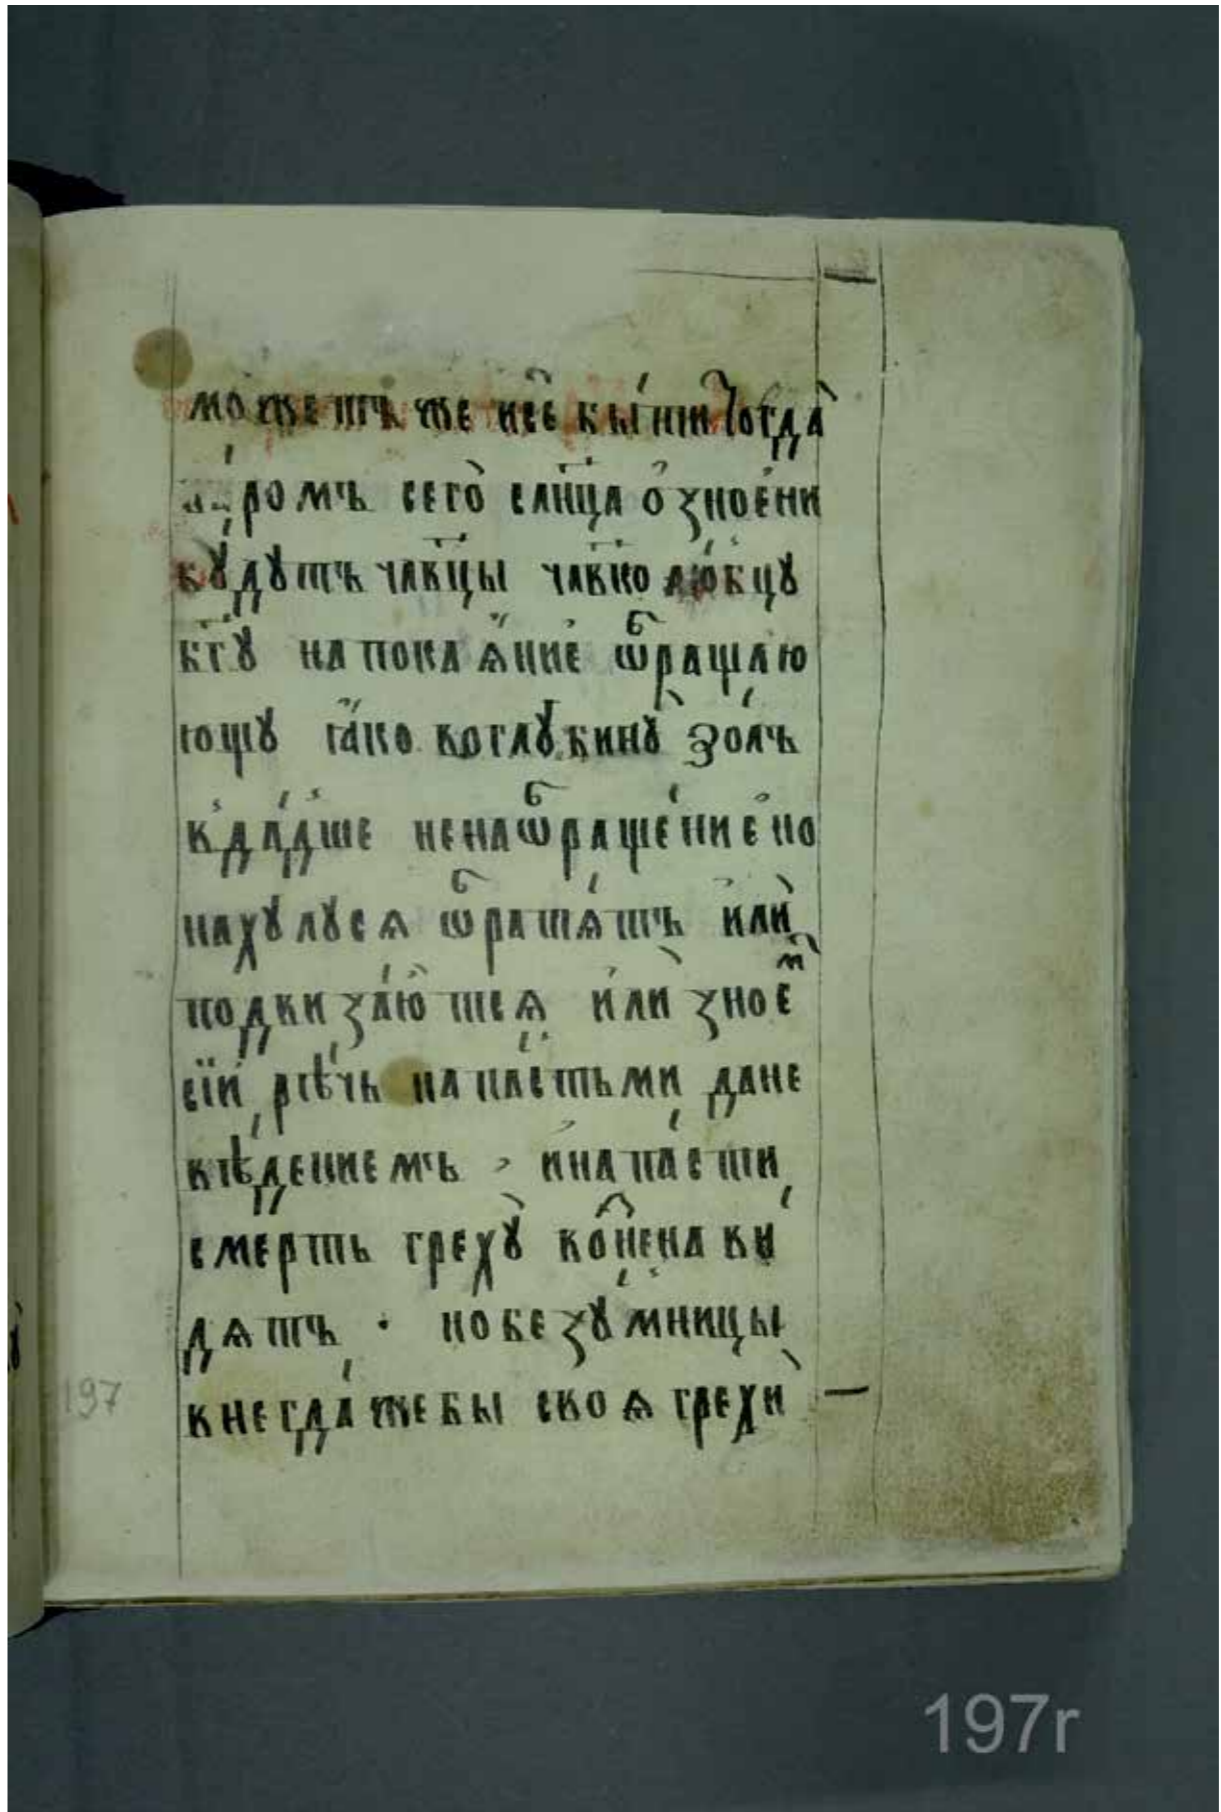 можетъ же и се бы́ти. Ѿогда̀
ꙗ́ромъ сего̀ сл҃нца ѻ҆ зное́ни
бꙋ́дꙋтъ чл҃вцы чл҃вколю́бцꙋ
бг҃ꙋ на покаѧ́ние ѡ҆бращаю
ющꙋ ꙗ҆́ко во глꙋбинꙋ̀ ѕо́лъ
в̾па́дше не на ѡ҆браще́ние но
на хꙋлꙋ сѧ ѡ҆братѧ́тъ и҆лѝ
подвиза́ютсѧ и҆лѝ зное҆м
сїѝ рѣ́чь напа́стьми да не
вѣ́дениемъ , и҆ напа́сти
смерть грехꙋ̀ во҆ не нави
дѧтъ · но безꙋ́мницы
внегда́ же бы своѧ грехѝ
197
197r